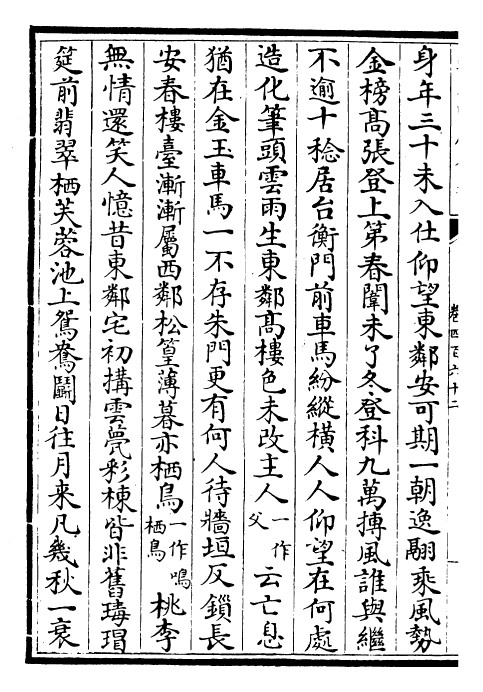 身年三十未入仕仰望東鄰安可期一朝逸翮乘風勢
金榜髙張登上第春闈未了冬登科九萬摶風誰與繼
不逾十稔居台衡門前車馬紛縱橫人人仰望在何處
造化筆頭雲雨生東鄰髙樓色未改主人一作父云亡息
猶在金玉車馬一不存朱門更有何人待牆垣反鎖長
安春樓臺漸漸屬西鄰松篁薄暮亦栖鳥一作鳴栖鳥桃李
無情還笑人憶昔東鄰宅初搆雲甍彩棟皆非舊瑇瑁
筵前翡翠栖芙蓉池上鴛鴦鬭日往月来凡幾秋一衰
卷四百六十二